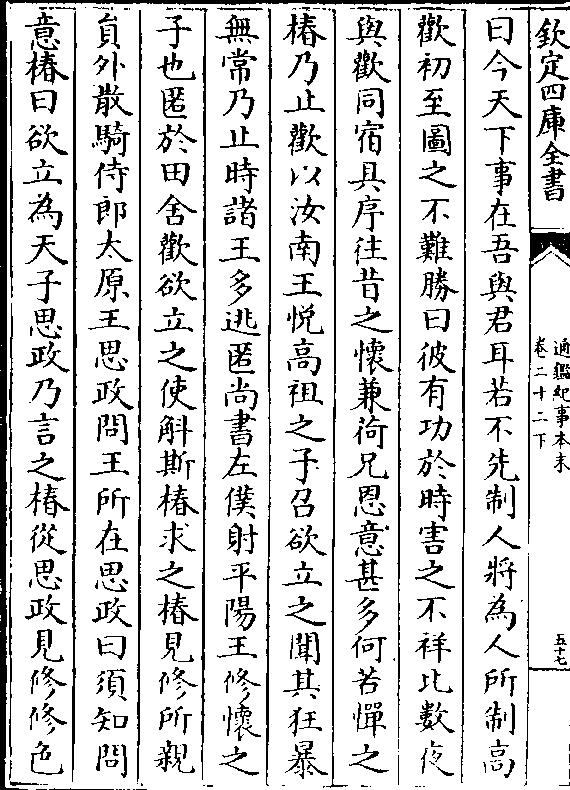 欽定四庫全書
通鑑紀事本末
卷二十二下
五十七
曰今天下事在吾與君耳若不先制人將為人所制高
歡初至圖之不難勝曰彼有功於時害之不祥比數夜
與歡同宿具序往昔之懷兼荷兄恩意甚多何苦憚之
椿乃止歡以汝南王悦高祖之子召欲立之聞其狂暴
無常乃止時諸王多逃匿尚書左僕射平陽王修懷之
子也匿於田舍歡欲立之使斛斯椿求之椿見修所親
員外散騎侍郎太原王思政問王所在思政曰須知問
意椿曰欲立為天子思政乃言之椿從思政見修修色